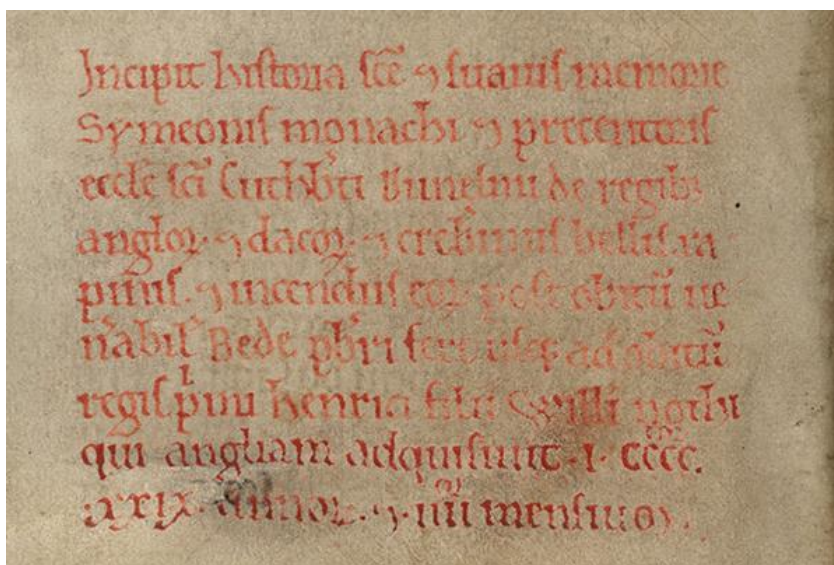 Incipit historia sc̄e ⁊ suauis memorie
Symeonis monachi ⁊ precentoris
eccl̄e sc̄i Cuthb̓ti Dunelmi de regib;
angloꝝ ⁊ dacoꝝ ⁊ creb̓rimis bellis ra
pinis. ⁊ incendiis eoꝝ post obitū ue
n̓abil̓ Bede pb̓ri fere usq; ad obitū
regis p̓mi henrici filii Willi nothi
qui angliam adquisiuit .i. cccc.
xxix. annoꝝ. ⁊ .iiii mensiuꝫ.